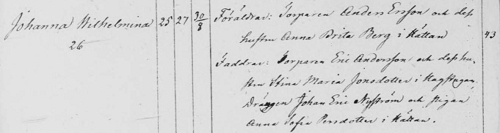 Johanna Wilhelmina 25 27 30/8 Föräldrar: Torparen Anders Ersson och dess
26 hustru Anna Brita Berg i Kättan 43
Faddrar: Torparen Eric Andersson och dess hu-
stru Stina Maria Jonsdotter i
Drängen Johan Eric Nyström och pigan
Anna Sofia Persdotter i Kättan.